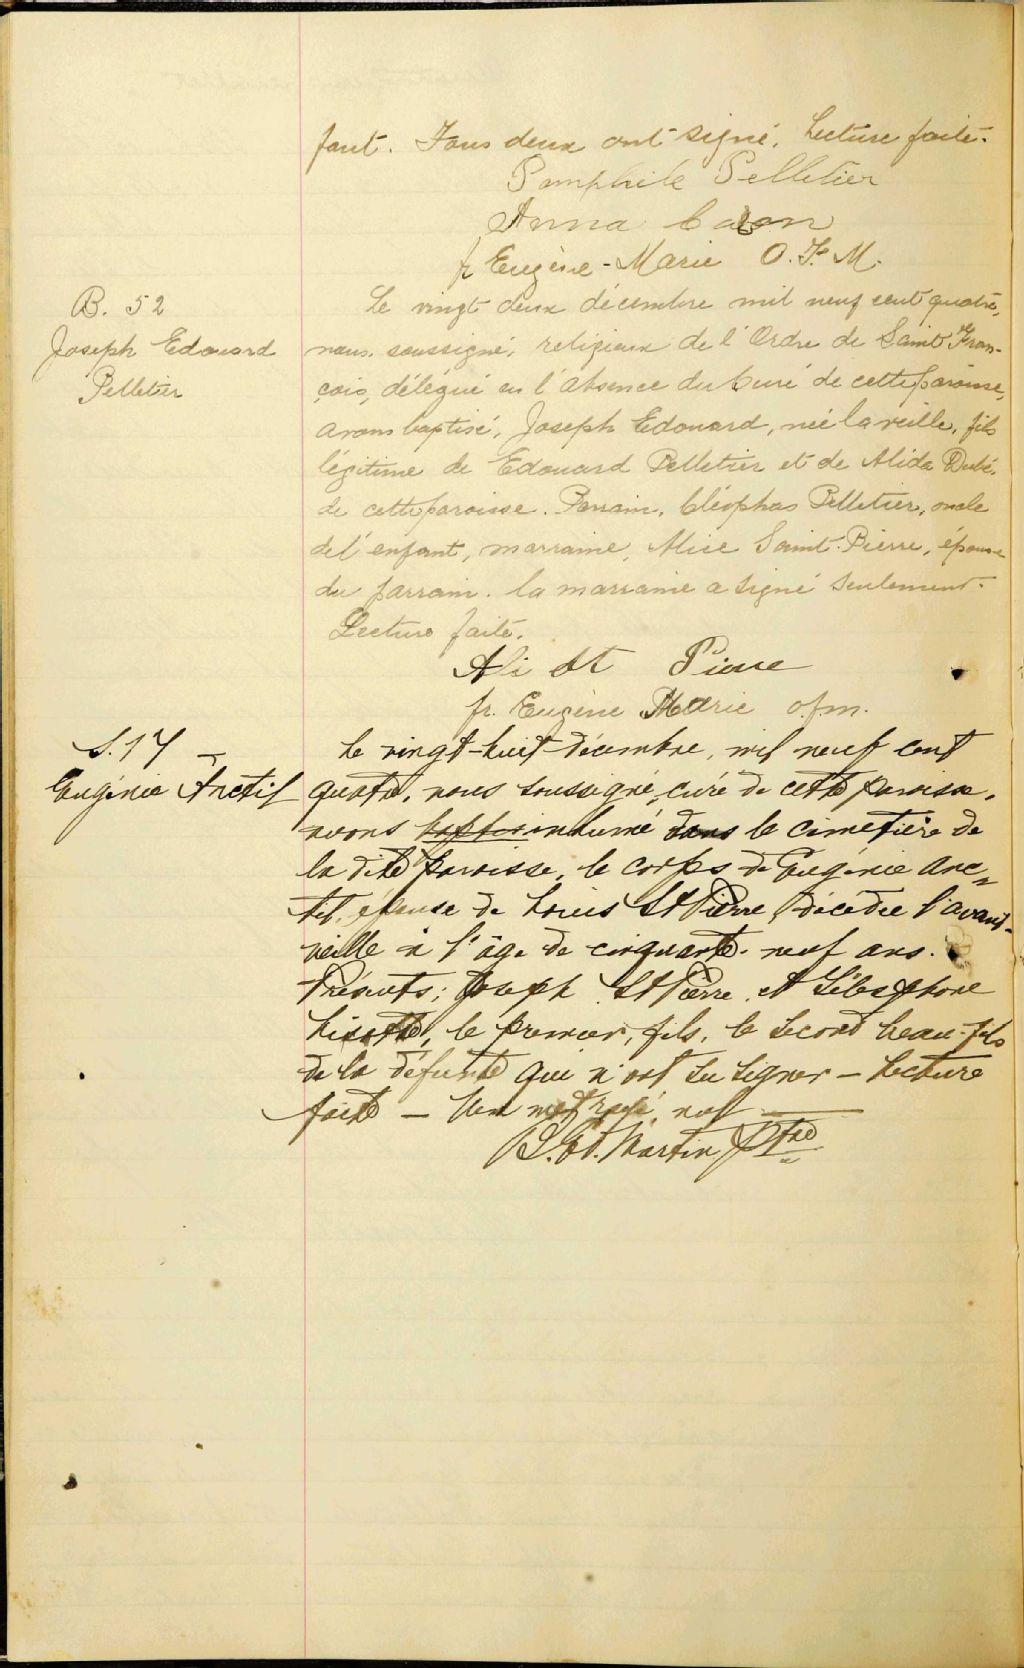 fant. Tous deux ont signé. Lecture faite.
Pamphile Pelletier
Anna Caron
fr Eugène-Marie O.F.M.
B. 52
Joseph Edouard
Pelletier
Le vingt deux décembre mil neuf cent quatre,
nous soussigné, religieux de l'Ordre de Saint Fran-
çois, délégué en l'absence du Curé de cette paroisse,
avons baptisé, Joseph Edouard, née la veille, fils
légitime de Edouard Pelletier et de Alida Dubé,
de cette paroisse. Parrain, Cléophas Pelletier, oncle
de l'enfant, marraine, Alice Saint-Pierre, épouse
du parrain. la marraine a signé seulement.
Lecture faite.
Ali St Pierre
fr. Eugène Marie o.f.m.
S. 17
Eugénie Anctil
Le vingt-huit décembre, mil neuf cent
quatre, nous soussigné, curé de cette paroisse,
avons inhumé dans le cimetière de
la dite paroisse, le corps de Eugénie Anc=
til, épouse de Louis St Pierre, décédée l'avant-
veille à l'âge de cinquante-neuf ans.
Présents; Joseph St Pierre, et Télesphore
Lizotte, le premier, fils, le second beau-fils
de la défunte qui n'ont su signer – Lecture
faite – Un mot rayé, nul
Ptre